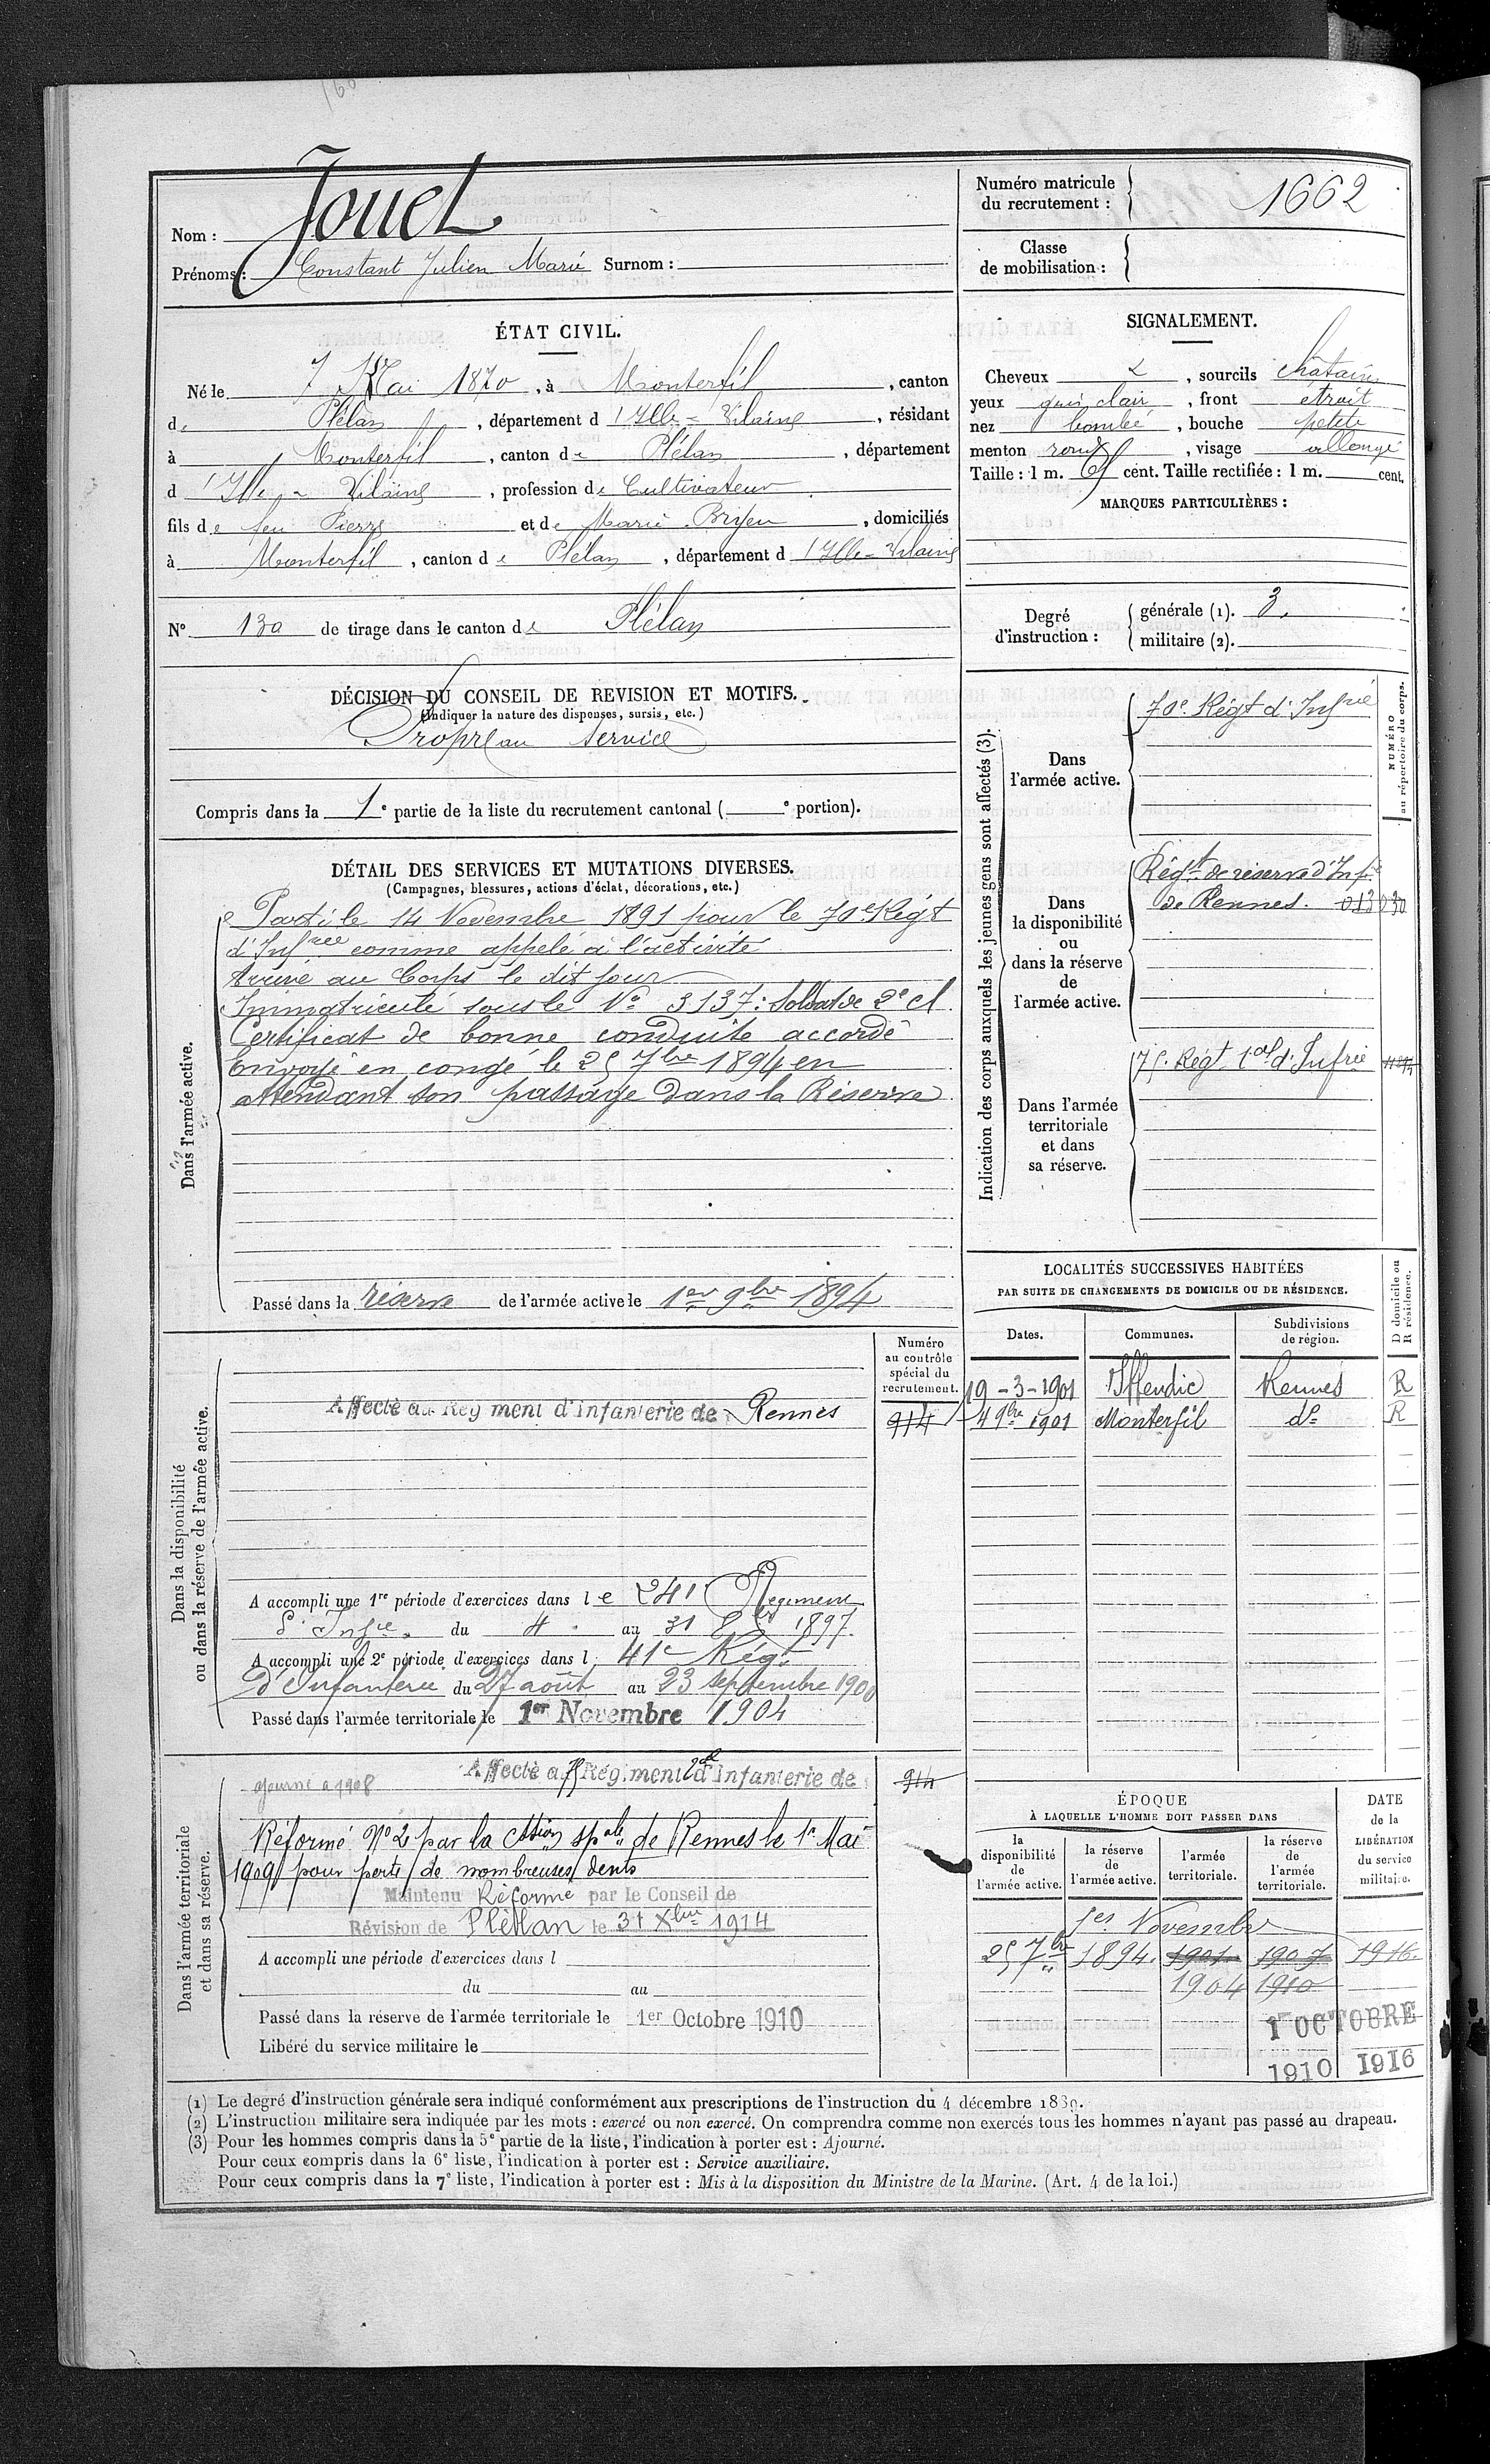 160
Nom : Jouet
Prénoms : Constant Julien Marie Surnom :
Numéro matricule du recrutement : 1662
Classe de mobilisation :
ÉTAT CIVIL.
Né le 7 Mai 1870, à Monterfil, canton
de Plélan, département d'Ille-Vilaine, résidant
à Monterfil, canton de Plélan, département
d'Ille-Vilaine, profession de Cultivateur
fils de feu Pierre et de Marie, domiciliés
à Monterfil, canton de Plélan, département d'Ille-Vilaine
N° 130 de tirage dans le canton de Plélan
SIGNALEMENT.
Cheveux, sourcils châtains
yeux gris clair, front étroit
nez bombé, bouche petite
menton rond, visage allongé
Taille : 1 m. cent. Taille rectifiée : 1 m. cent.
MARQUES PARTICULIÈRES :
Degré d'instruction : générale (1). 3.
militaire (2).
DÉCISION DU CONSEIL DE REVISION ET MOTIFS.
(Indiquer la nature des dispenses, sursis, etc.)
Propre au service
Compris dans la 1e partie de la liste du recrutement cantonal ( e portion).
DÉTAIL DES SERVICES ET MUTATIONS DIVERSES.
(Campagnes, blessures, actions d'éclat, décorations, etc.)
Dans l'armée active.
Parti le 14 Novembre 1891 pour le 70e Régt
d'Infrie comme appelé à l'activité
Arrivé au Corps le dit jour
Immatriculé sous le N° 3137 : Soldat de 2e cl
Certificat de bonne conduite accordé
Envoyé en congé le 25 7bre 1894 en
attendant son passage dans la Réserve
Passé dans la réserve de l'armée active le 1er 9bre 1894
Indication des corps auxquels les jeunes gens sont affectés (3).
NUMÉRO au répertoire du corps.
Dans l'armée active.
70e Régt d'Infrie
Dans la disponibilité ou dans la réserve de l'armée active.
Régt de réserve d'Inf.
de Rennes.
Dans l'armée territoriale et dans sa réserve.
75e Régt tal d'Infrie
LOCALITÉS SUCCESSIVES HABITÉES
PAR SUITE DE CHANGEMENTS DE DOMICILE OU DE RÉSIDENCE.
D domicile ou R résidence.
Dates. Communes. Subdivisions de région.
19-3-1901 Iffendic Rennes R
4 9bre 1901 Monterfil do R
Dans la disponibilité ou dans la réserve de l'armée active.
Numéro au contrôle spécial du recrutement.
Affecté au Régiment d'Infanterie de Rennes 914
A accompli une 1re période d'exercices dans le 241 Régiment
d'Infie du 4 au 31 1897.
A accompli une 2e période d'exercices dans l 41e Régt
d'Infanterie du 27 août au 23 septembre 1900
Passé dans l'armée territoriale le 1er Novembre 1904
Dans l'armée territoriale et dans sa réserve.
Affecté au 75 Régiment tal d'Infanterie de 914
ajourné à 1908
Réformé N° 2 par la Cssion spale de Rennes le 1er Mai
1909 pour perte de nombreuses dents
Maintenu Réformé par le Conseil de
Révision de Plélan le 31 Xbre 1914
A accompli une période d'exercices dans l
du au
Passé dans la réserve de l'armée territoriale le 1er Octobre 1910
Libéré du service militaire le
ÉPOQUE
À LAQUELLE L'HOMME DOIT PASSER DANS
la disponibilité de l'armée active.
la réserve de l'armée active.
l'armée territoriale.
la réserve de l'armée territoriale.
DATE de la LIBÉRATION du service militaire.
1er Novembre
25 7bre 1894. 1901. 1907 1916.
1904 1910
1er OCTOBRE
1910 1916
(1) Le degré d'instruction générale sera indiqué conformément aux prescriptions de l'instruction du 4 décembre 1889.
(2) L'instruction militaire sera indiquée par les mots : exercé ou non exercé. On comprendra comme non exercés tous les hommes n'ayant pas passé au drapeau.
(3) Pour les hommes compris dans la 5e partie de la liste, l'indication à porter est : Ajourné.
Pour ceux compris dans la 6e liste, l'indication à porter est : Service auxiliaire.
Pour ceux compris dans la 7e liste, l'indication à porter est : Mis à la disposition du Ministre de la Marine. (Art. 4 de la loi.)